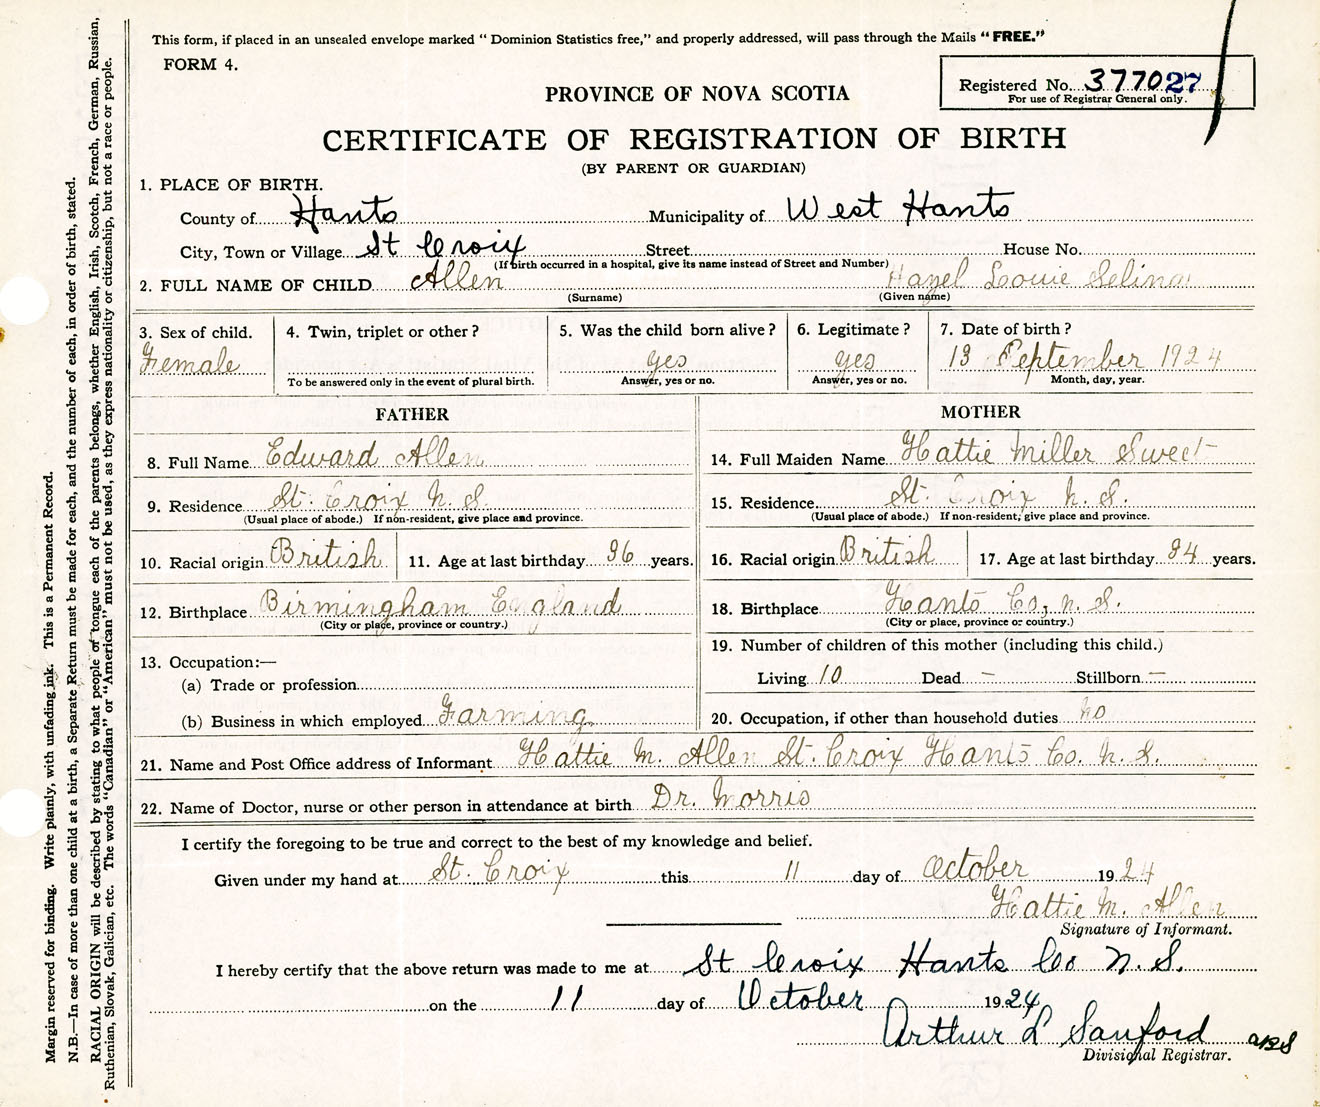 This form, if placed in an unsealed envelope marked " Dominion Statistics free," and properly addressed, will pass through the Mails "FREE."
FORM 4.
Registered No. 377027
For use of Registrar General only.
PROVINCE OF NOVA SCOTIA
CERTIFICATE OF REGISTRATION OF BIRTH
(BY PARENT OR GUARDIAN)
1. PLACE OF BIRTH.
County of Hants Municipality of West Hants
City, Town or Village St Croix Street House No.
(If birth occurred in a hospital, give its name instead of Street and Number)
2. FULL NAME OF CHILD Allen Hazel Louie Selina
(Surname) (Given name)
3. Sex of child. 4. Twin, triplet or other? 5. Was the child born alive? 6. Legitimate? 7. Date of birth?
Female yes yes 13 September 1924
To be answered only in the event of plural birth. Answer, yes or no. Answer, yes or no. Month, day, year.
FATHER
8. Full Name Edward Allen
9. Residence St. Croix N. S.
(Usual place of abode.) If non-resident, give place and province.
10. Racial origin British 11. Age at last birthday 36 years.
12. Birthplace Birmingham England
(City or place, province or country.)
13. Occupation:—
(a) Trade or profession
(b) Business in which employed Farming
MOTHER
14. Full Maiden Name Hattie Miller Sweet
15. Residence St. Croix N. S.
(Usual place of abode.) If non-resident, give place and province.
16. Racial origin British 17. Age at last birthday 34 years.
18. Birthplace Hants Co, N. S.
(City or place, province or country.)
19. Number of children of this mother (including this child.)
Living 10 Dead — Stillborn —
20. Occupation, if other than household duties no
21. Name and Post Office address of Informant Hattie M. Allen St. Croix Hants Co. N. S.
22. Name of Doctor, nurse or other person in attendance at birth Dr. Morris
I certify the foregoing to be true and correct to the best of my knowledge and belief.
Given under my hand at St. Croix this 11 day of October 1924
Hattie M. Allen
Signature of Informant.
I hereby certify that the above return was made to me at St Croix Hants Co N. S.
on the 11 day of October 1924
Arthur L Sanford
Divisional Registrar.
Margin reserved for binding. Write plainly, with unfading ink. This is a Permanent Record.
N.B.—In case of more than one child at a birth, a Separate Return must be made for each, and the number of each, in order of birth, stated.
RACIAL ORIGIN will be described by stating to what people or tongue each of the parents belongs, whether English, Irish, Scotch, French, German, Russian,
Ruthenian, Slovak, Galician, etc. The words "Canadian" or "American" must not be used, as they express nationality or citizenship, but not a race or people.